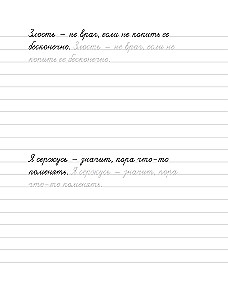 Злость – не враг, если не копить её
бесконечно. Злость – не враг, если не
копить её бесконечно.
Я сержусь – значит, пора что-то
поменять. Я сержусь – значит, пора
что-то поменять.